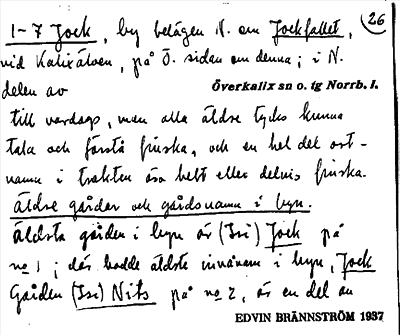 26
1-7 Jock, by belägen N. om Jockfallet,
vid Kalixälven, på Ö. sidan om denna; i N.
delen av
Överkalix sn o. tg Norrb. l.
till vardags, men alla äldre tycks kunna
tala och förstå finska, och en hel del ort-
namn i trakten äro helt eller delvis finska.
äldre gårdar och gårdsnamn i byn.
Äldsta gården i byn är (Isi) Jock på
no 1; där bodde äldste invånarn i byn, Jock
Gården (Isi) Nils på no 2, är en del av
EDVIN BRÄNNSTRÖM 1937